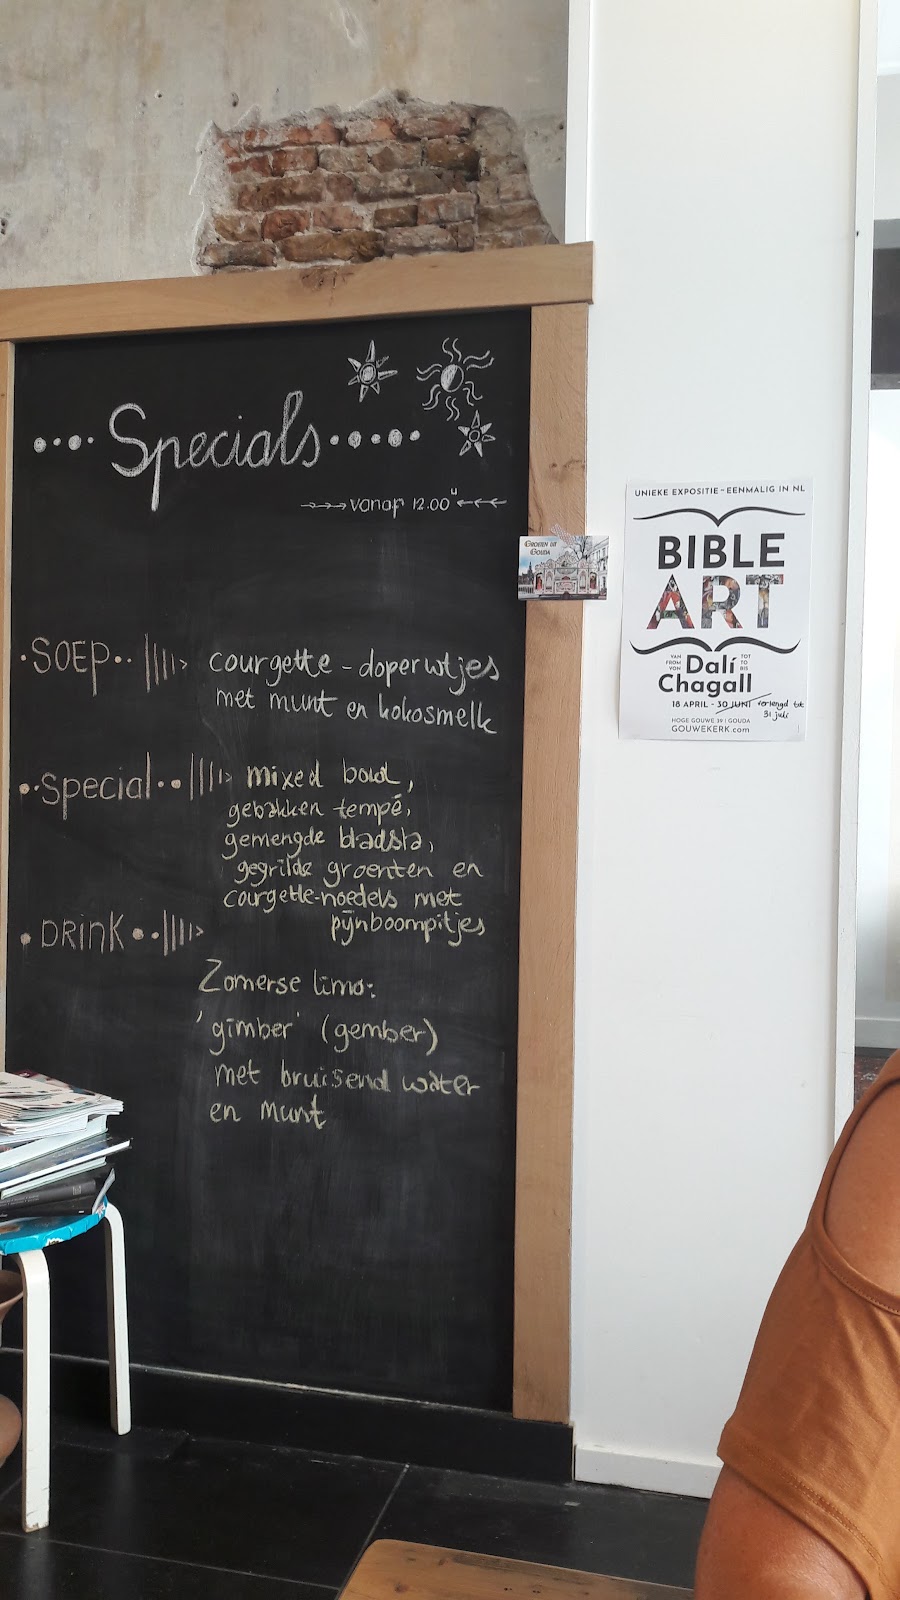 Specials
vanaf 12.00 u
SOEP
courgette - doperwtjes
met munt en kokosmelk
Special
mixed bowl,
gebakken tempé,
gemengde bladsla,
gegrilde groenten en
courgette-noedels met
pijnboompitjes
DRINK
Zomerse limo:
'gimber' (gember)
met bruisend water
en munt
GROETEN UIT
GOUDA
UNIEKE EXPOSITIE - EENMALIG IN NL
BIBLE
ART
VAN FROM VON Dalí TOT TO BIS
Chagall
18 APRIL - 30 JUNI verlengd tot
31 juli
HOGE GOUWE 39 | GOUDA
GOUWEKERK.com